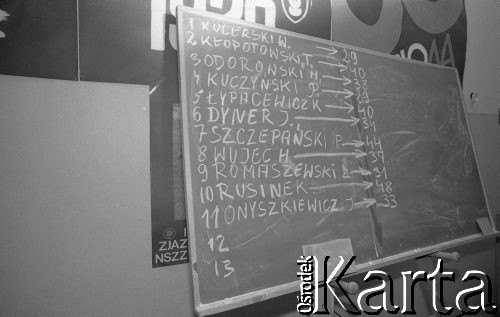 1 KULERSKI W.
2 KŁOPOTOWSKI T. → 29
3 ODOROWSKI H. → 40
4 KUCZYŃSKI P. → 38
5 ŁYPACEWICZ K → 29
6 DYNER J. → 40
7 SZCZEPAŃSKI P. → 44
8 WUJEC H → 37
9 ROMASZEWSKI Z → 31
10 RUSINEK → 18
11 ONYSZKIEWICZ J → 33
12
13
ZJAZ
NSZZ
Ośrodek Karta